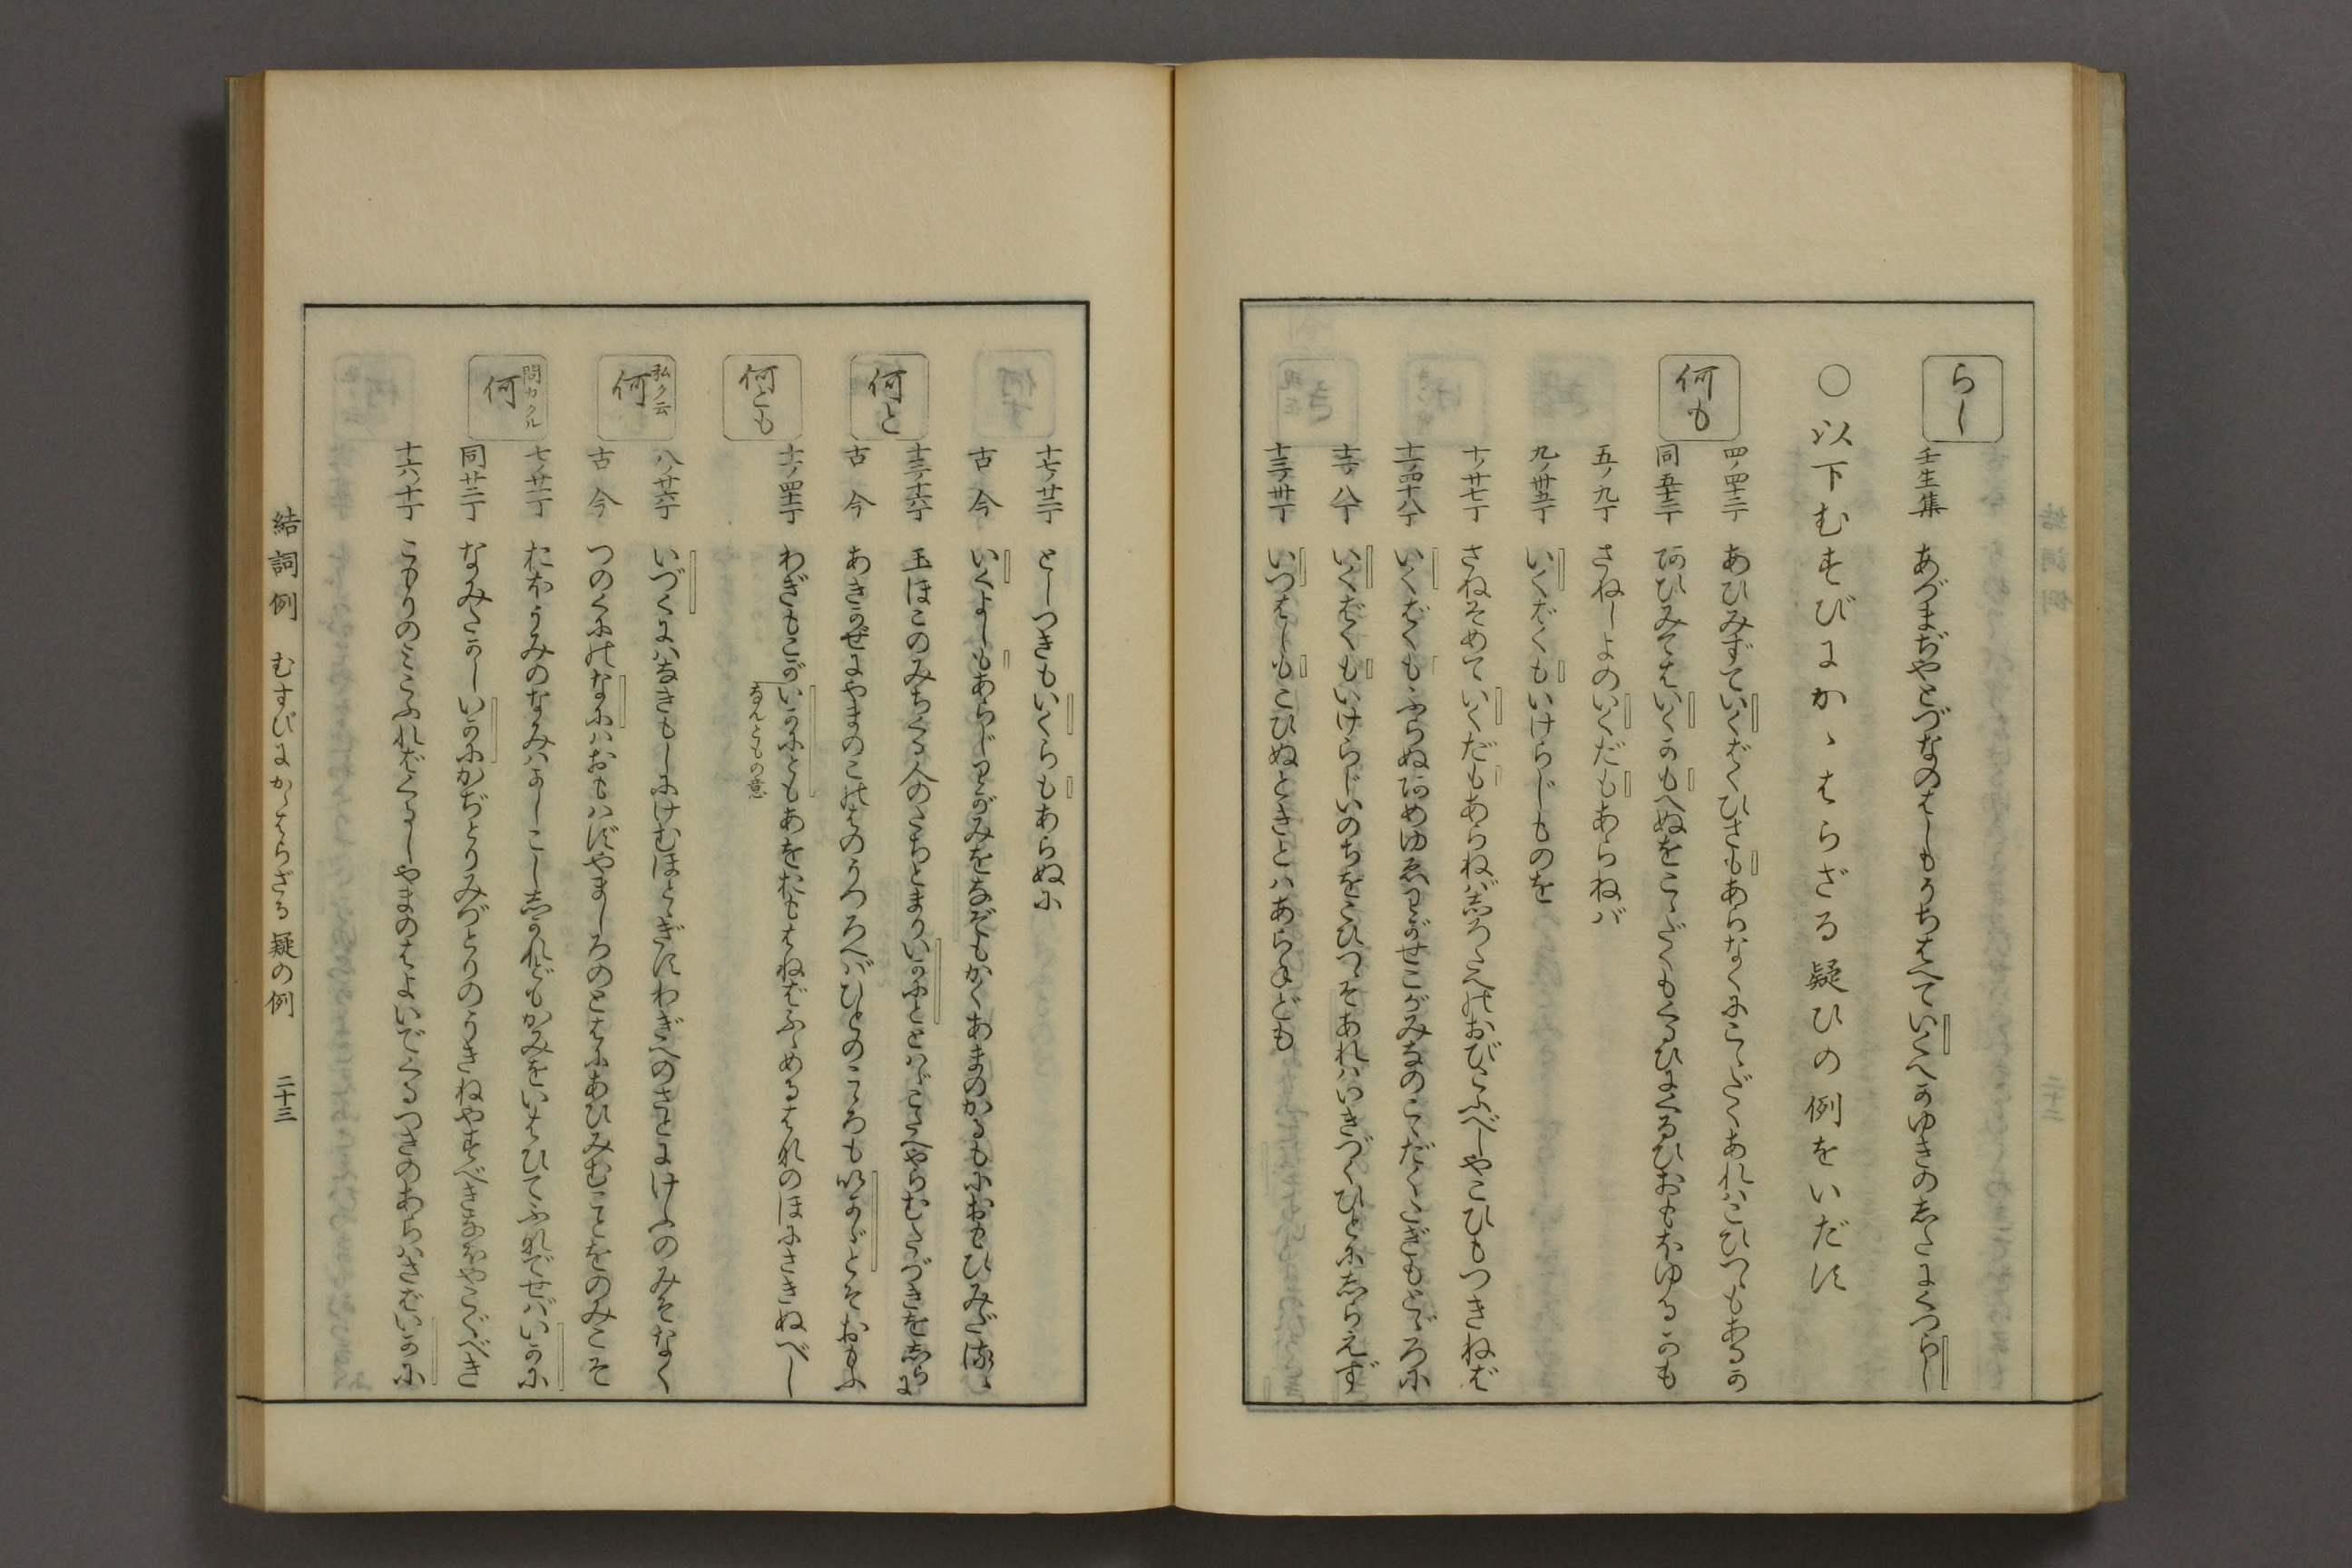 らし
壬生集 あづまぢやとづなのはしもうちはへていくへかゆきのしたにくつらし
○以下むすびにかゝはらざる疑ひの例をいだす
何も
四ノ四十三丁 あひみずていくばくひさもあらなくにこゝだくあれはこひつゝもあるか
同五十三丁 あひみてはいくかもへぬをこゝだくもくるひにくるひおもほゆるかも
五ノ九丁 さねしよのいくだもあらねバ
九ノ卅五丁 いくばくもいけらじものを
十ノ廿七丁 さねそめていくだもあらねバしろたへのおびこふべしやこひもつきねば
十一ノ四十八丁 いくばくもふらぬあめゆゑわがせこがみなのこゝだくたぎもとゞろに
十二ノ八丁 いくばくもいけらじいのちをこひつゝぞあれハいきづくひとにしらえず
十三ノ卅丁 いつはしもこひぬときとハあらねども
十七ノ廿二丁 としつきもいくらもあらぬに
古今 いくよしもあらじわがみをなぞもかくあまのかるもにおもひみだるゝ
十三ノ十六丁 玉ほこのみちくる人のたちとまりいかにととハゞこたへやらむたづきをしらに
古今 あきかぜにやまのこのはのうつろへバひとのこゝろもいかゞとぞおもふ
何と
何とも
十一ノ四十丁 わぎもこがいかにともあをおもはねばふゝめるはなのほにさきぬべし
なんともの意
私ク云 何
八ノ廿六丁 いづくにハなきもしにけむほとゝぎすわぎへのさとにけふのみぞなく
古今 つのくにのなにハおもハずやましろのとはにあひみむことをのみこそ
問カクル 何
七ノ廿一丁 おほうみのなみハかしこししかれどもかみをいはひてふなでせバいかに
同廿二丁 なみたかしいかにかぢとりみづとりのうきねやすべきなほやこぐべき
十六ノ十丁 こもりのみこふればくるしやまのはよいでくるつきのあらハさばいかに
結詞例 むすびにかゝはらざる疑の例 二十三